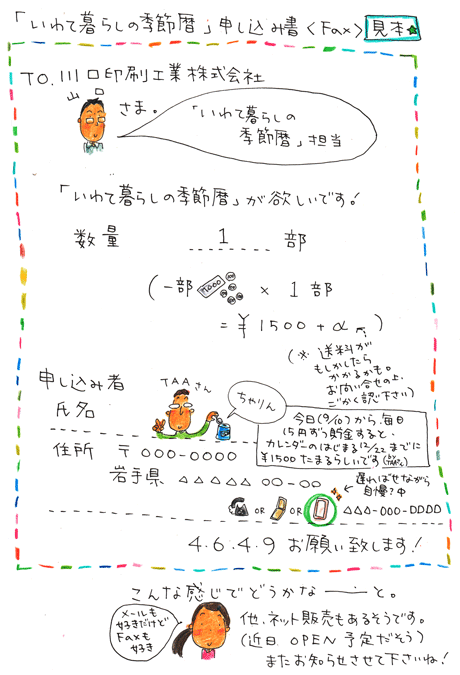 「いわて暮らしの季節暦」申し込み書〈Fax〉見本
TO.川口印刷工業株式会社
山口
さま。
「いわて暮らしの
季節暦」担当
「いわて暮らしの季節暦」が欲しいです!
数量 1 部
(一部 ¥1000 100 100 × 1部
= ¥1500+α)
(※送料が
もしかしたら
かかるかも。
お問い合せの上、
ごかくにん下さい)
申し込み者
氏名
TAAさん
ちゃりん
今日(9/10)から毎日
15円ずつ貯金すると、
カレンダーのはじまる12/22までに
¥1500たまるらしいです
住所 〒000-0000
岩手県 △△△△△ ○○-○○
遅ればせながら
自慢?中
OR OR △△△-○○○-□□□□
4.6.4.9 お願い致します!
こんな感じでどうかな――と。
メールも
好きだけど
Faxも
好き
他、ネット販売もあるそうです。
(近日 OPEN 予定だそう)
またお知らせさせて下さいね!